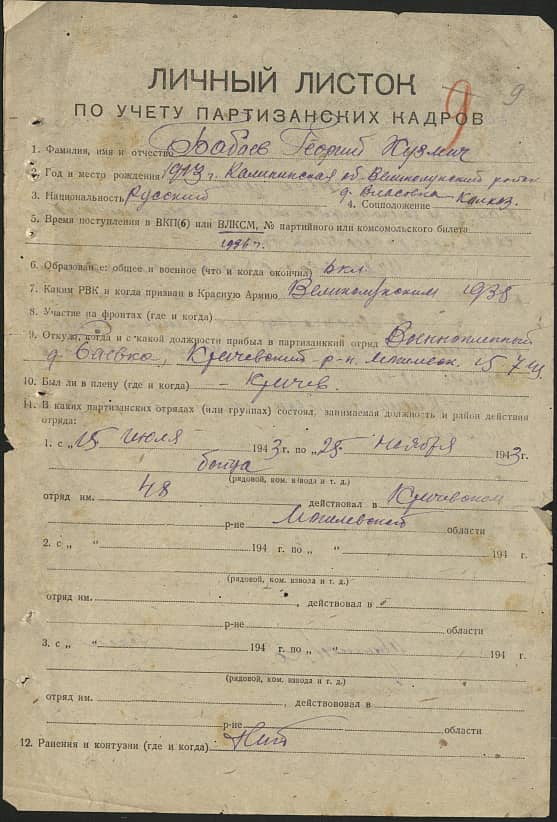 ЛИЧНЫЙ ЛИСТОК
9 9
ПО УЧЕТУ ПАРТИЗАНСКИХ КАДРОВ
1. Фамилия, имя и отчество Бабаев Георгий Кузмич
2. Год и место рождения 1913 г. Калининская об. Великолукский район
3. Национальность Русский д. Власовка Колхоз.
4. Соцположение
5. Время поступления в ВКП(б) или ВЛКСМ, № партийного или комсомольского билета
1936 г.
6. Образование: общее и военное (что и когда окончил) 6 кл.
7. Каким РВК и когда призван в Красную Армию Великолукским 1938
8. Участие на фронтах (где и когда)
9. Откуда, когда и с какой должности прибыл в партизанский отряд Военнопленный
д. Баевка, Кричевский р-н. Могилевск. 15 7
10. Был ли в плену (где и когда) – Кричев.
11. В каких партизанских отрядах (или группах) состоял, занимаемая должность и район действия
отряда:
1. с „15 июля 1943 г. по „25 ноября 1943 г.
бойца
(рядовой, ком. взвода и т. д.)
отряд им. 48 действовал в Кричевском
р-не Могилевской области
2. с „ “ 194 г. по „ “ 194 г.
(рядовой, ком. взвода и т. д.)
отряд им. , действовал в
р-не области
3. с „ “ 194 г. по „ “ 194 г.
(рядовой, ком. взвода и т. д.)
отряд им. , действововал в
р-не области
12. Ранения и контузии (где и когда) Нит